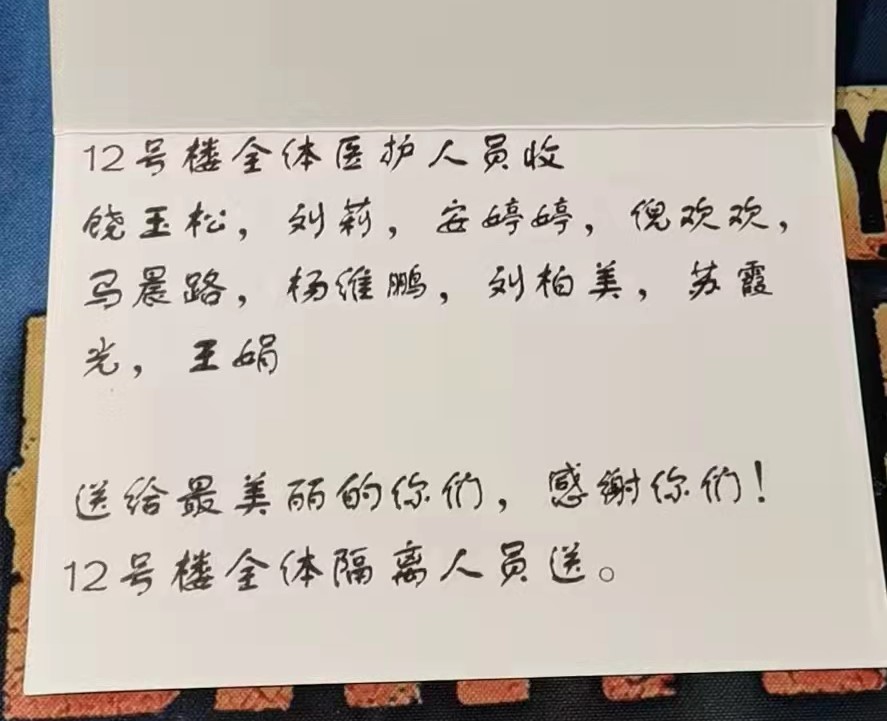 12号楼全体医护人员收
饶玉松，刘莉，安婷婷，倪欢欢，
马晨路，杨维鹏，刘柏美，苏霞
光，王娟
送给最美丽的你们，感谢你们！
12号楼全体隔离人员送。
Y